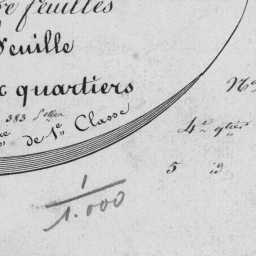 feuilles
Feuille
quartiers
383
de 1re Classe
4e qtier
5 id
1
1.000